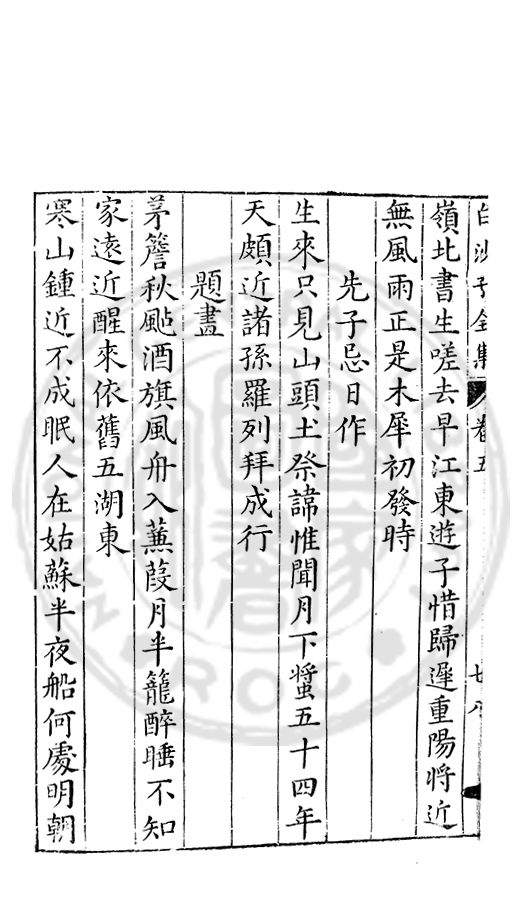 白沙子全集 卷五
嶺北書生嗟去早江東遊子惜歸遲重陽將近
無風雨正是木犀初發時
先子忌日作
生來只見山頭土祭諱惟聞月下蛩五十四年
天頗近諸孫羅列拜成行
題畫
茅簷秋颭酒旗風舟入蒹葭月半籠醉睡不知
家遠近醒來依舊五湖東
寒山鍾近不成眠人在姑蘇半夜船何處明朝